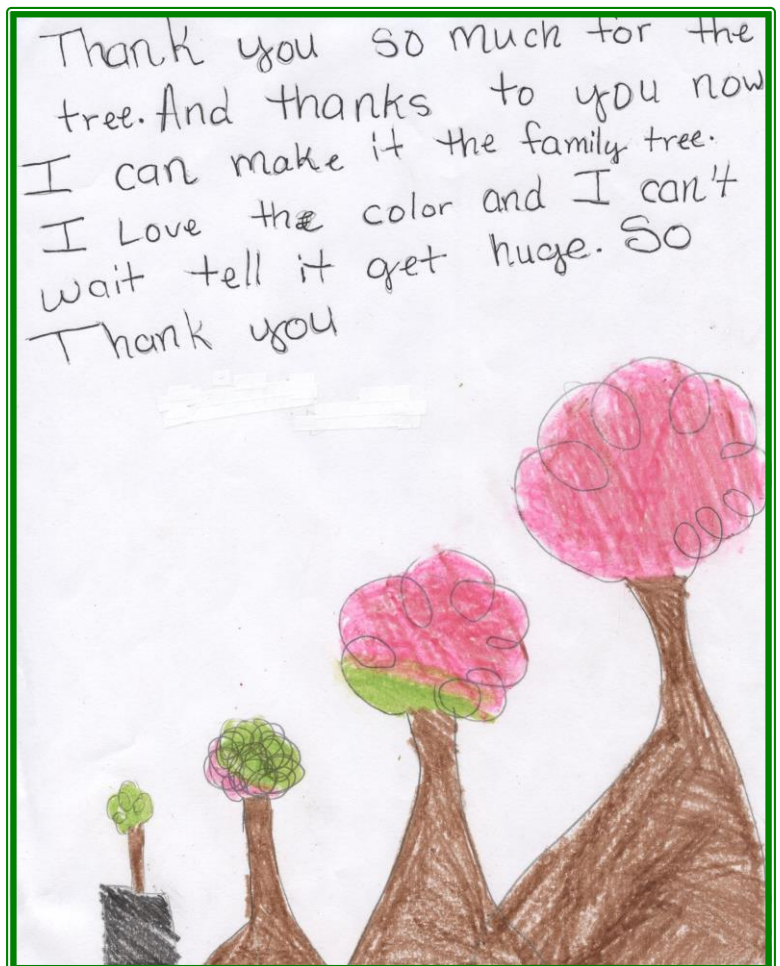 Thank you so much for the
tree. And thanks to you now
I can make it the family tree.
I Love the color and I can't
wait tell it get huge. So
Thank you